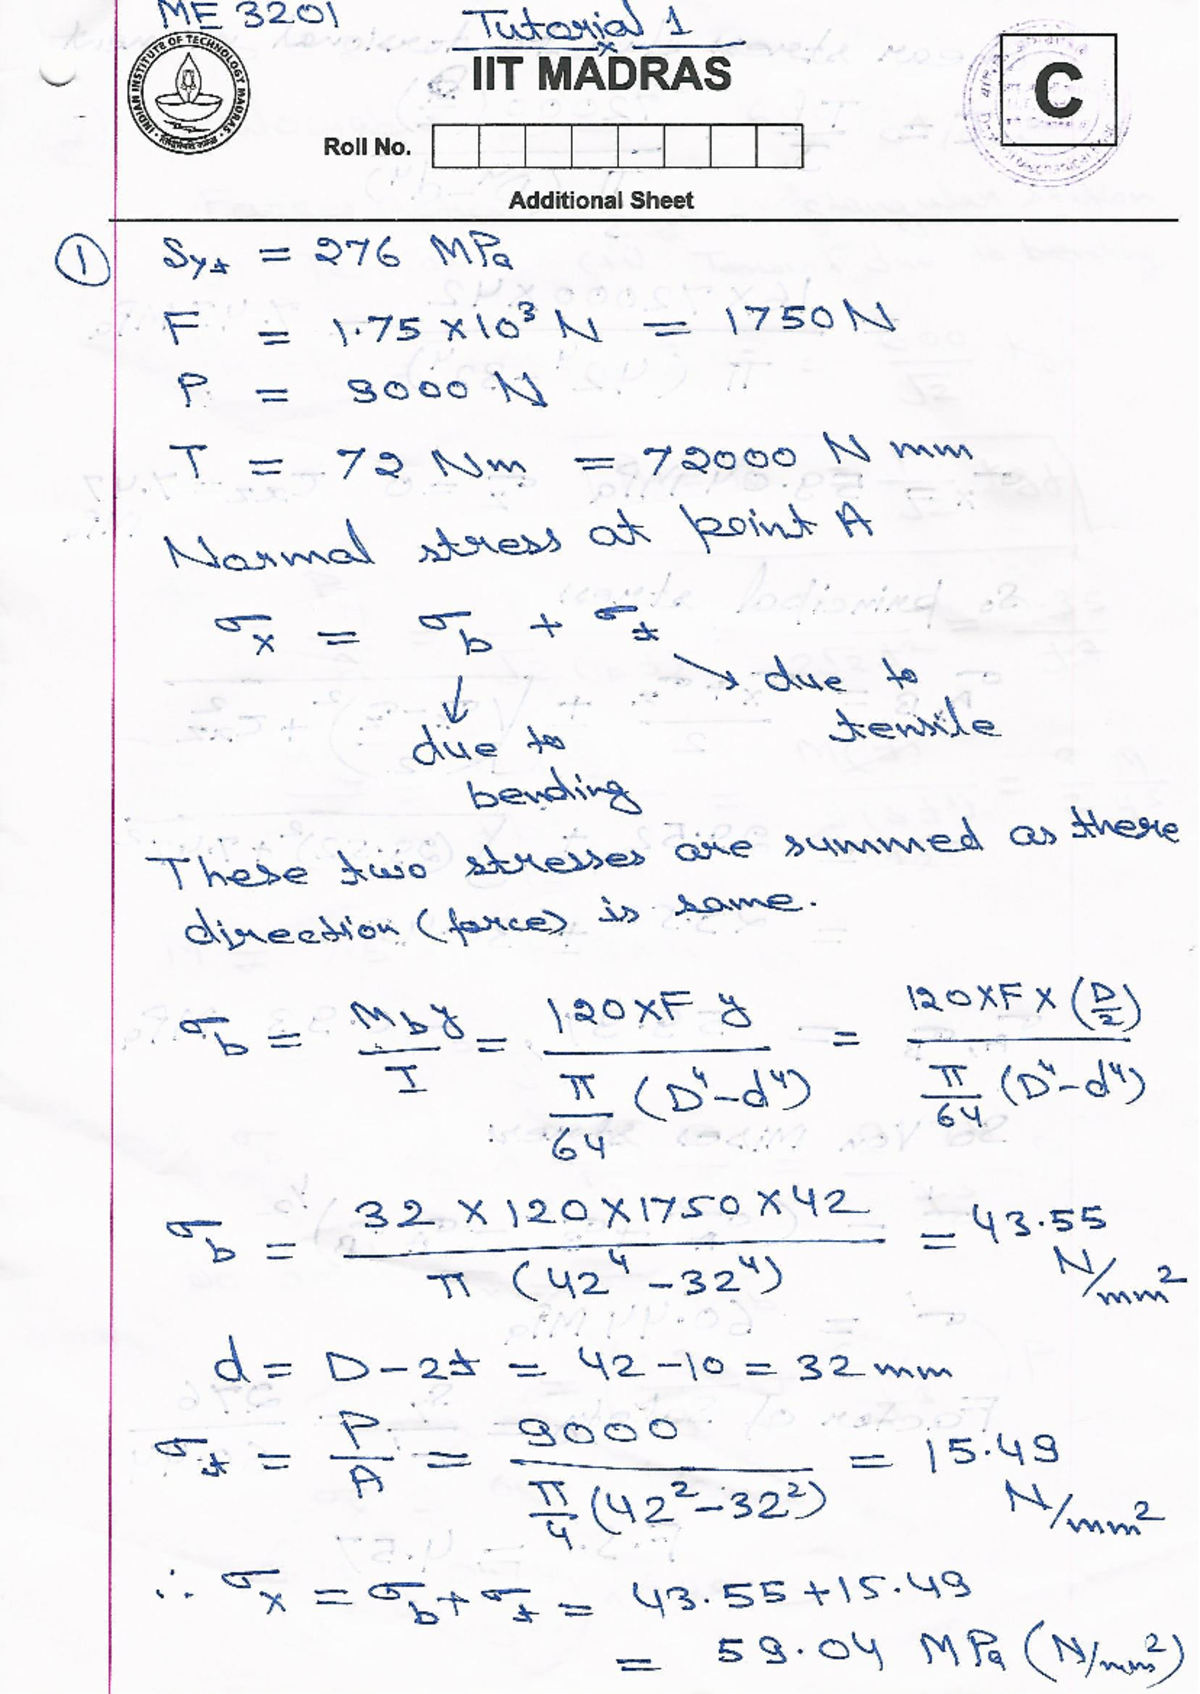 ME 3201
Tutorial 1
IIT MADRAS
C
INDIAN INSTITUTE OF TECHNOLOGY MADRAS
Roll No.
Additional Sheet
① Syt = 276 MPa
F = 1.75 × 10³ N = 1750 N
P = 9000 N
T = 72 Nm = 72000 N mm
Normal stress at point A
σx = σb + σt
due to tensile
due to bending
These two stresses are summed as there
direction (force) is same.
σb = Mb y / I = 120 × F y / (π/64 (D⁴ - d⁴)) = 120 × F × (D/2) / (π/64 (D⁴ - d⁴))
σb = 32 × 120 × 1750 × 42 / (π (42⁴ - 32⁴)) = 43.55 N/mm²
d = D - 2t = 42 - 10 = 32 mm
σt = P/A = 9000 / (π/4 (42² - 32²)) = 15.49 N/mm²
∴ σx = σb + σt = 43.55 + 15.49
= 59.04 MPa (N/mm²)